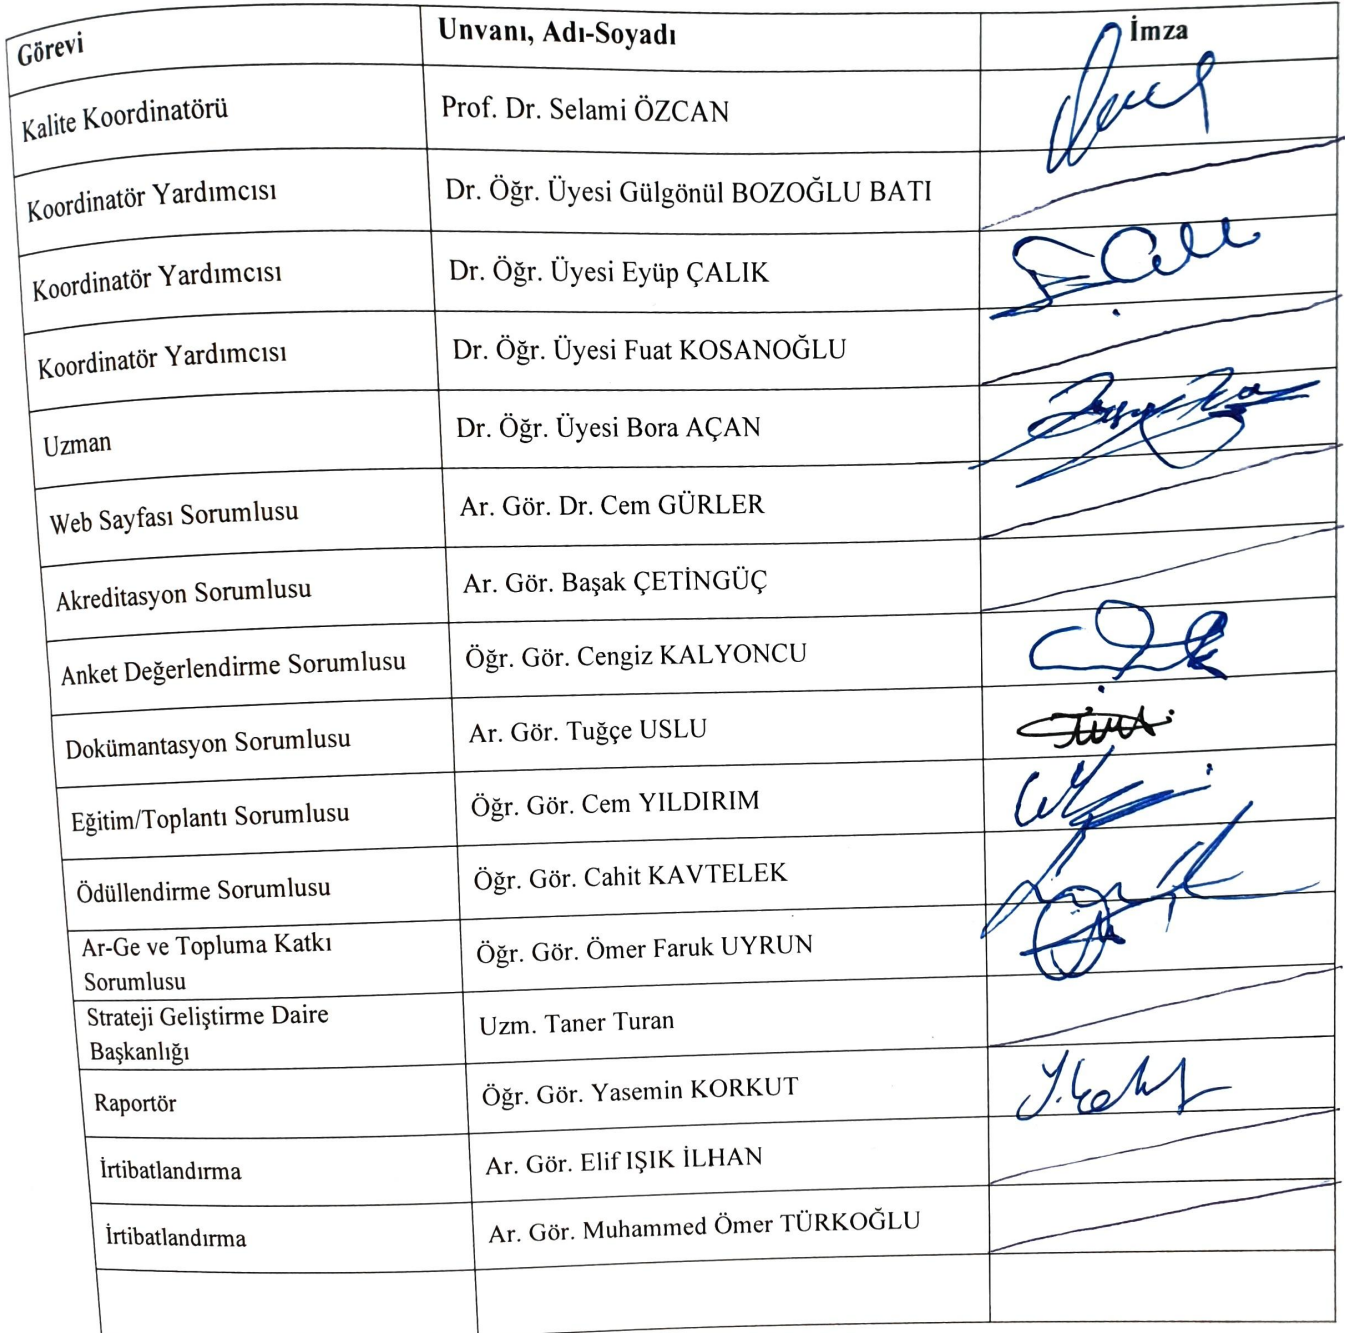 Görevi Unvanı, Adı-Soyadı İmza
Kalite Koordinatörü Prof. Dr. Selami ÖZCAN
Koordinatör Yardımcısı Dr. Öğr. Üyesi Gülgönül BOZOĞLU BATI
Koordinatör Yardımcısı Dr. Öğr. Üyesi Eyüp ÇALIK
Koordinatör Yardımcısı Dr. Öğr. Üyesi Fuat KOSANOĞLU
Uzman Dr. Öğr. Üyesi Bora AÇAN
Web Sayfası Sorumlusu Ar. Gör. Dr. Cem GÜRLER
Akreditasyon Sorumlusu Ar. Gör. Başak ÇETİNGÜÇ
Anket Değerlendirme Sorumlusu Öğr. Gör. Cengiz KALYONCU
Dokümantasyon Sorumlusu Ar. Gör. Tuğçe USLU
Eğitim/Toplantı Sorumlusu Öğr. Gör. Cem YILDIRIM
Ödüllendirme Sorumlusu Öğr. Gör. Cahit KAVTELEK
Ar-Ge ve Topluma Katkı
Sorumlusu
Öğr. Gör. Ömer Faruk UYRUN
Strateji Geliştirme Daire
Başkanlığı
Uzm. Taner Turan
Raportör Öğr. Gör. Yasemin KORKUT
İrtibatlandırma Ar. Gör. Elif IŞIK İLHAN
İrtibatlandırma Ar. Gör. Muhammed Ömer TÜRKOĞLU